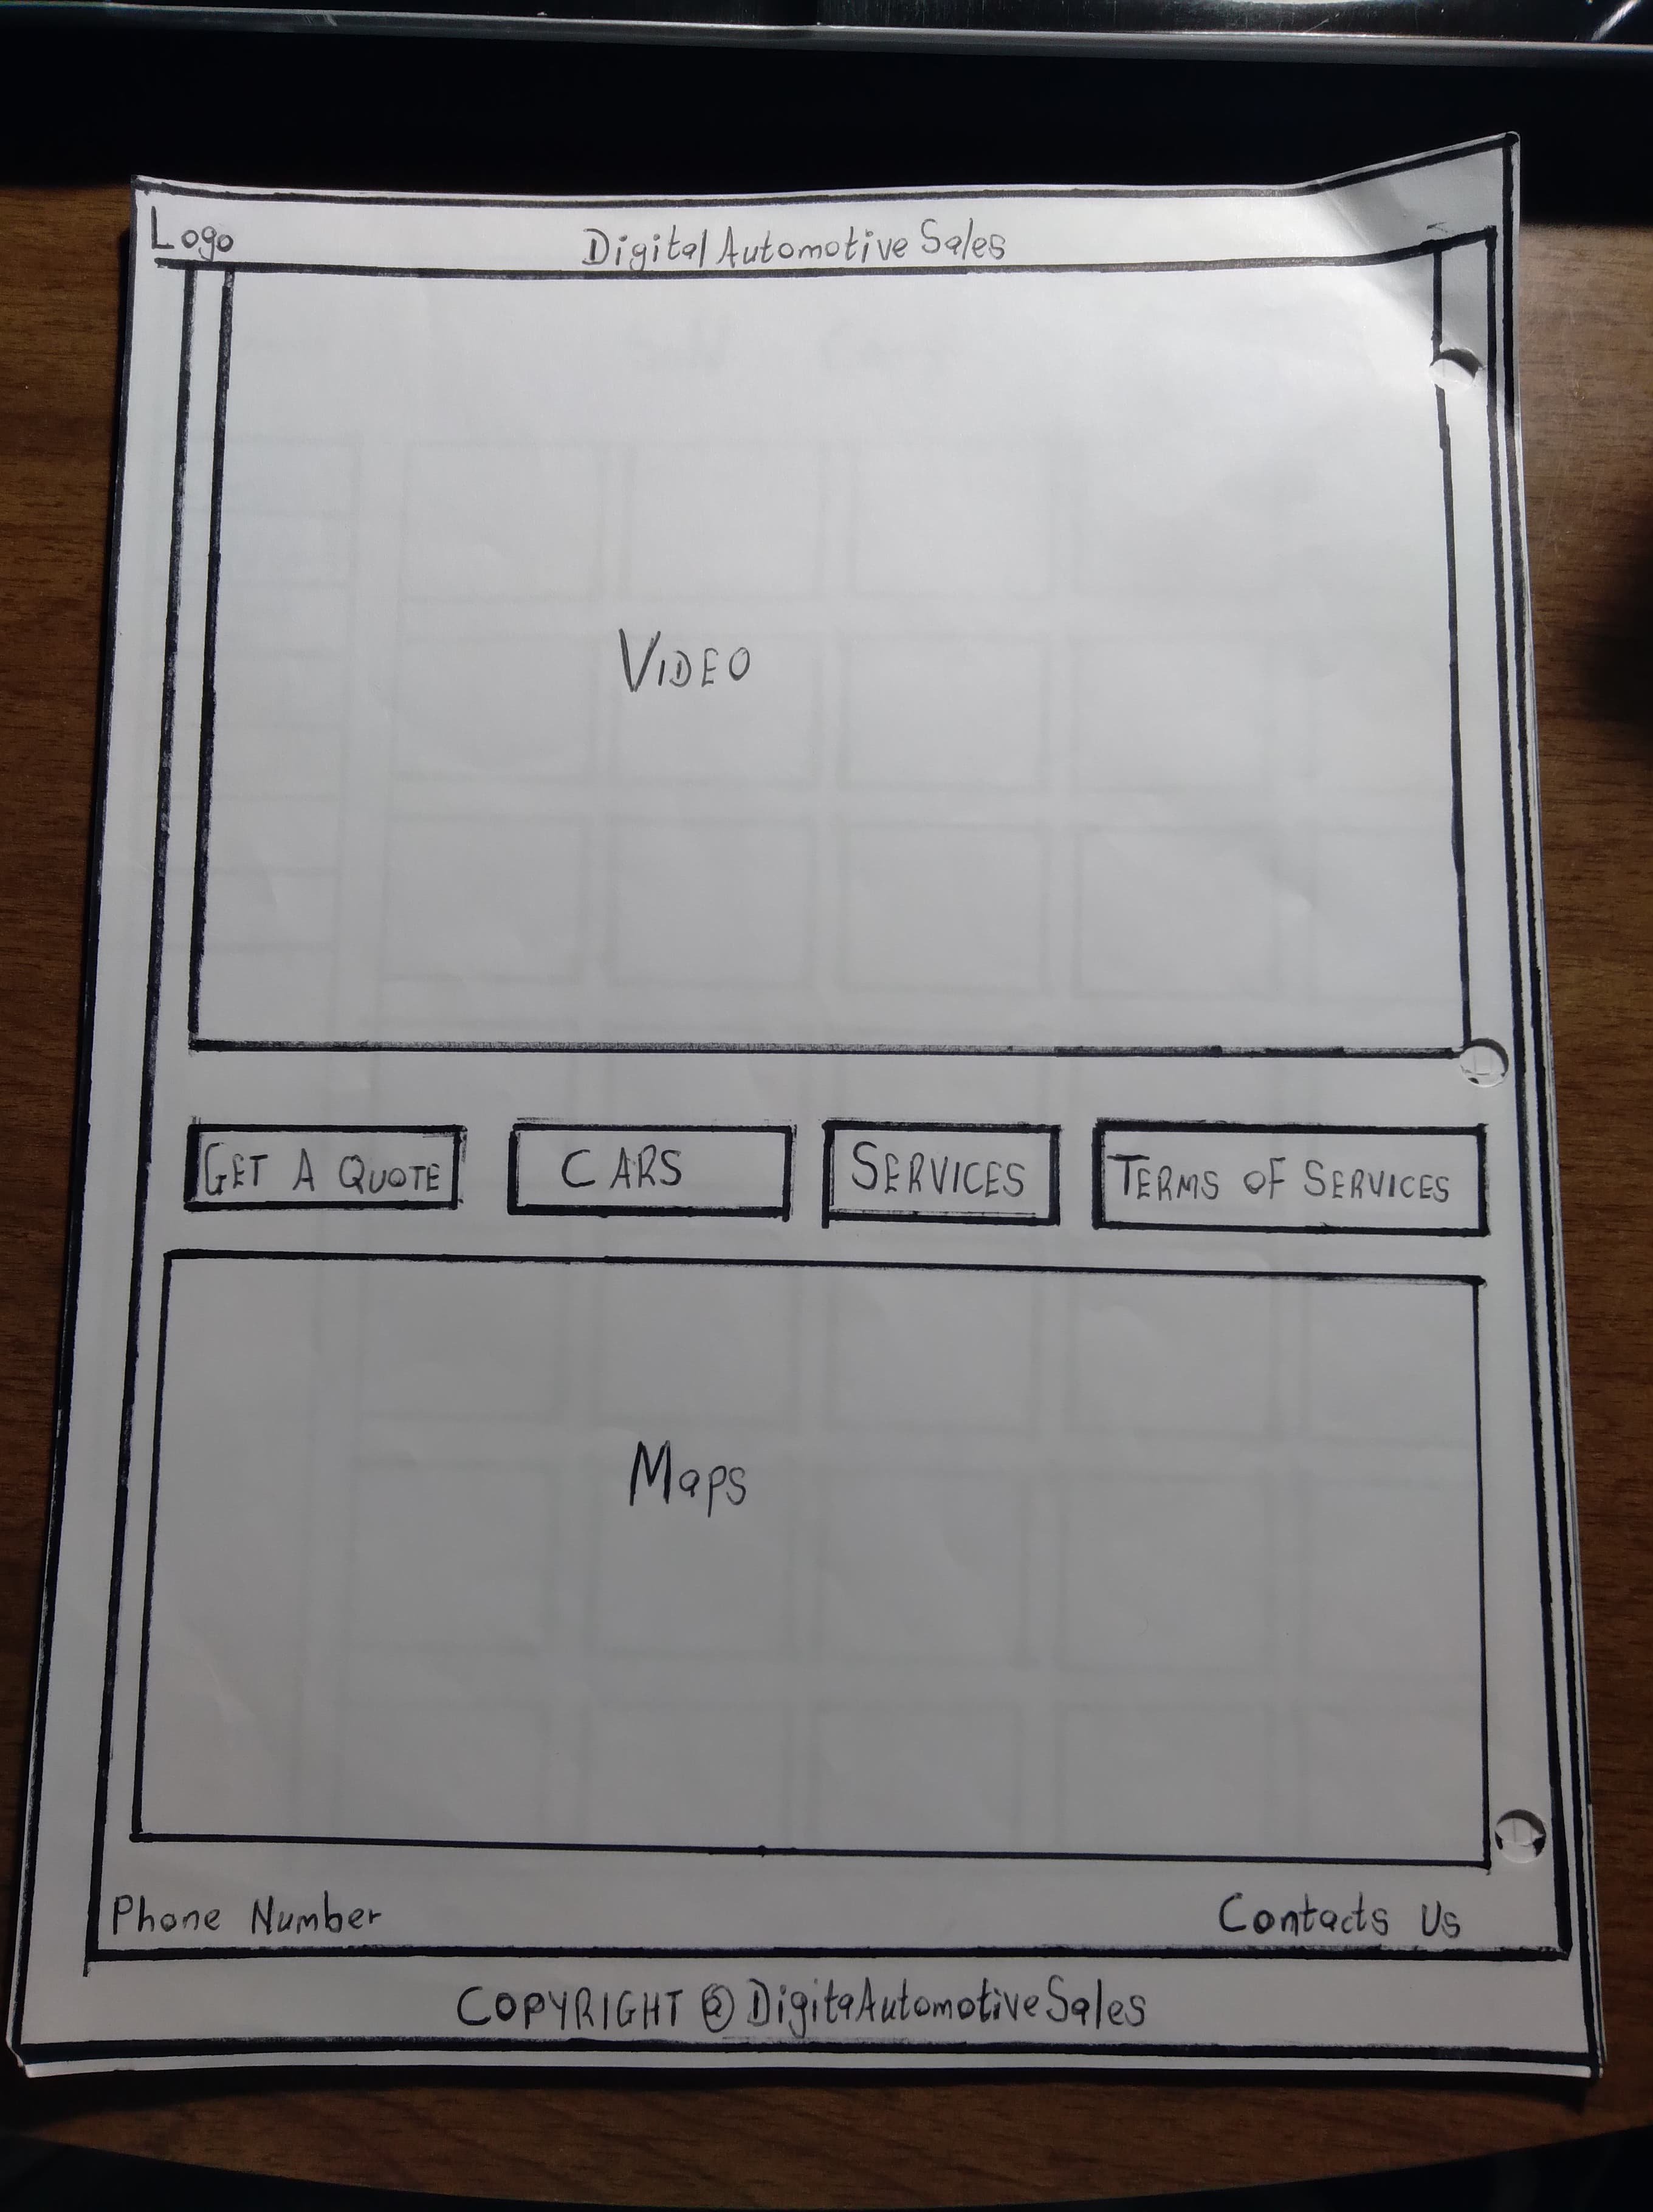 Logo
Digital Automotive Sales
VIDEO
GET A QUOTE
CARS
SERVICES
TERMS OF SERVICES
Maps
Phone Number
Contacts Us
COPYRIGHT @ DigitaAutomotiveSales